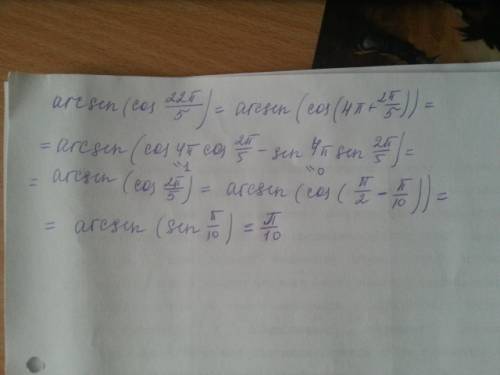 arcsen(cos 22π/5) = arcsen(cos(4π+2π/5)) =
= arcsen(cos 4π cos 2π/5 - sen 4π sen 2π/5) =
"1 "0
= arcsen(cos 2π/5) = arcsen(cos(π/2 - π/10)) =
= arcsen(sen π/10) = π/10